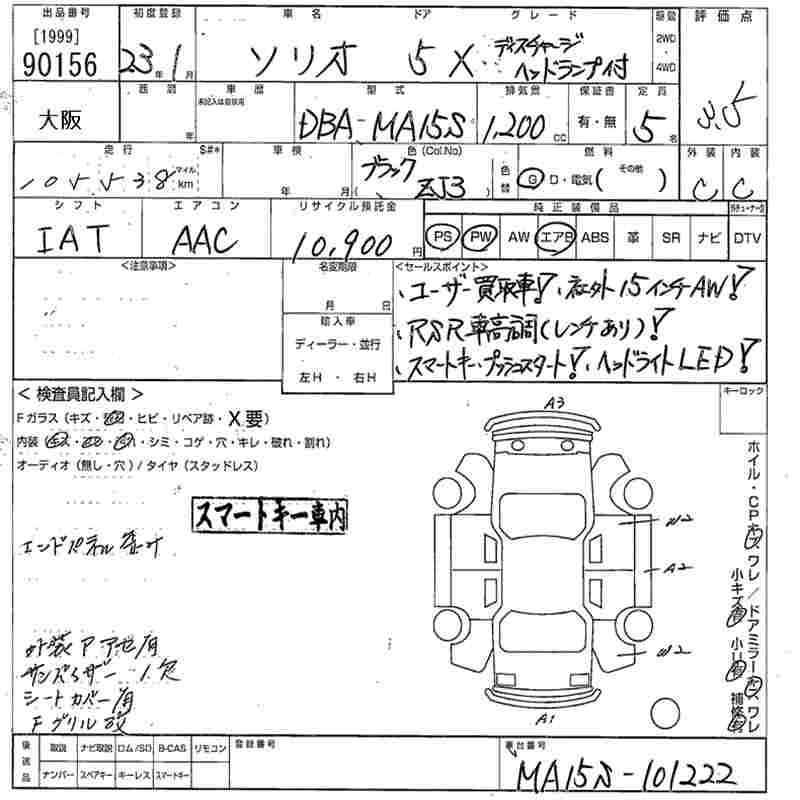 出品番号 初度登録 車名 ドア グレード 駆動 評価点
[1999] 90156 23年1月 ソリオ 5 X ディスチャージ ヘッドランプ付 2WD ・ 4WD 3.5
大阪 年 車歴 未記入は自家用 型式 排気量 保証書 定員
DBA-MA15S 1,200cc 有・無 5名
走行 S#* 車検 色(Col.No) 燃料 その他 外装 内装
105538 マイル km 年 月 ブラック ZJ3 色替 G D・電気( ) C C
シフト エアコン リサイクル預託金 純正装備品
IAT AAC 10,900円 PS PW AW エアB ABS 革 SR ナビ DTV
<注意事項> 名変期限 <セールスポイント>
月 日
輸入車
ディーラー・並行
左H・右H
、ユーザー買取車!、社外15インチAW!
、RSR車高調(レンチあり)!
、スマートキープッシュスタート!、ヘッドライトLED!
キーロック
<検査員記入欄>
Fガラス(キズ・・ヒビ・リペア跡・X要)
内装(・シミ・コゲ・穴・キレ・破れ・割れ)
オーディオ(無し・穴)/タイヤ(スタッドレス)
スマートキー車内
エンドパネル
外装
サンバイザー 1欠
シートカバー有
Fグリル改
A3
W2
A2
W2
A1
ホイル・CPキズワレ/ドアミラーキズワレ
小キズ有 小U有 補修有
後送品 取説 ナビ取説 ロム/SD B-CAS リモコン 登録番号 車台番号
ナンバー スペアキー キーレス スマートキー
MA15S-101222